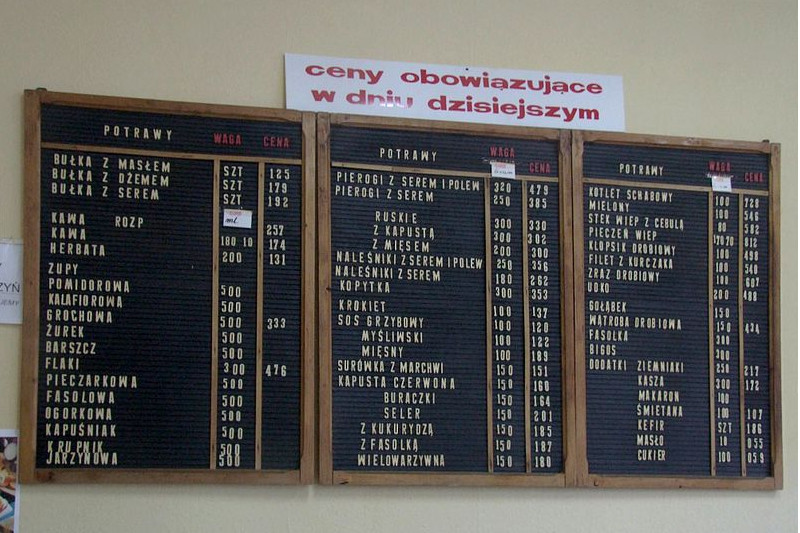 ceny obowiązujące
w dniu dzisiejszym
POTRAWY WAGA CENA
BUŁKA Z MASŁEM SZT 125
BUŁKA Z DŻEMEM SZT 179
BUŁKA Z SEREM SZT 192
ml.
KAWA ROZP 257
KAWA 180 10 174
HERBATA 200 131
ZUPY
POMIDOROWA 500
KALAFIOROWA 500
GROCHOWA 500 333
ŻUREK 500
BARSZCZ 500
FLAKI 300 476
PIECZARKOWA 500
FASOLOWA 500
OGORKOWA 500
KAPUŚNIAK 500
KRUPNIK 500
JARZYNOWA 500
POTRAWY WAGA CENA
PIEROGI Z SEREM I POLEW 320 479
PIEROGI Z SEREM 250 385
RUSKIE 300 330
Z KAPUSTĄ 300 302
Z MIĘSEM 200 300
NALEŚNIKI Z SEREM I POLEW 250 356
NALEŚNIKI Z SEREM 180 262
KOPYTKA 300 353
KROKIET 100 137
SOS GRZYBOWY 100 120
MYŚLIWSKI 100 122
MIĘSNY 100 189
SURÓWKA Z MARCHWI 150 151
KAPUSTA CZERWONA 150 160
BURACZKI 150 164
SELER 150 201
Z KUKURYDZĄ 150 185
Z FASOLKĄ 150 187
WIELOWARZYWNA 150 180
POTRAWY WAGA CENA
KOTLET SCHABOWY 100 728
MIELONY 100 546
STEK WIEP Z CEBULĄ 80 582
PIECZEŃ WIEP 812
KLOPSIK DROBIOWY 100 490
FILET Z KURCZAKA 100 540
ZRAZ DROBIOWY 100 607
UDKO 200 488
GOŁĄBEK 150
WĄTROBA DROBIOWA 150 434
FASOLKA 300
BIGOS 300
DODATKI ZIEMNIAKI 250 217
KASZA 300 172
MAKARON 100
ŚMIETANA 100 107
KEFIR SZT 186
MASŁO 10 055
CUKIER 100 059